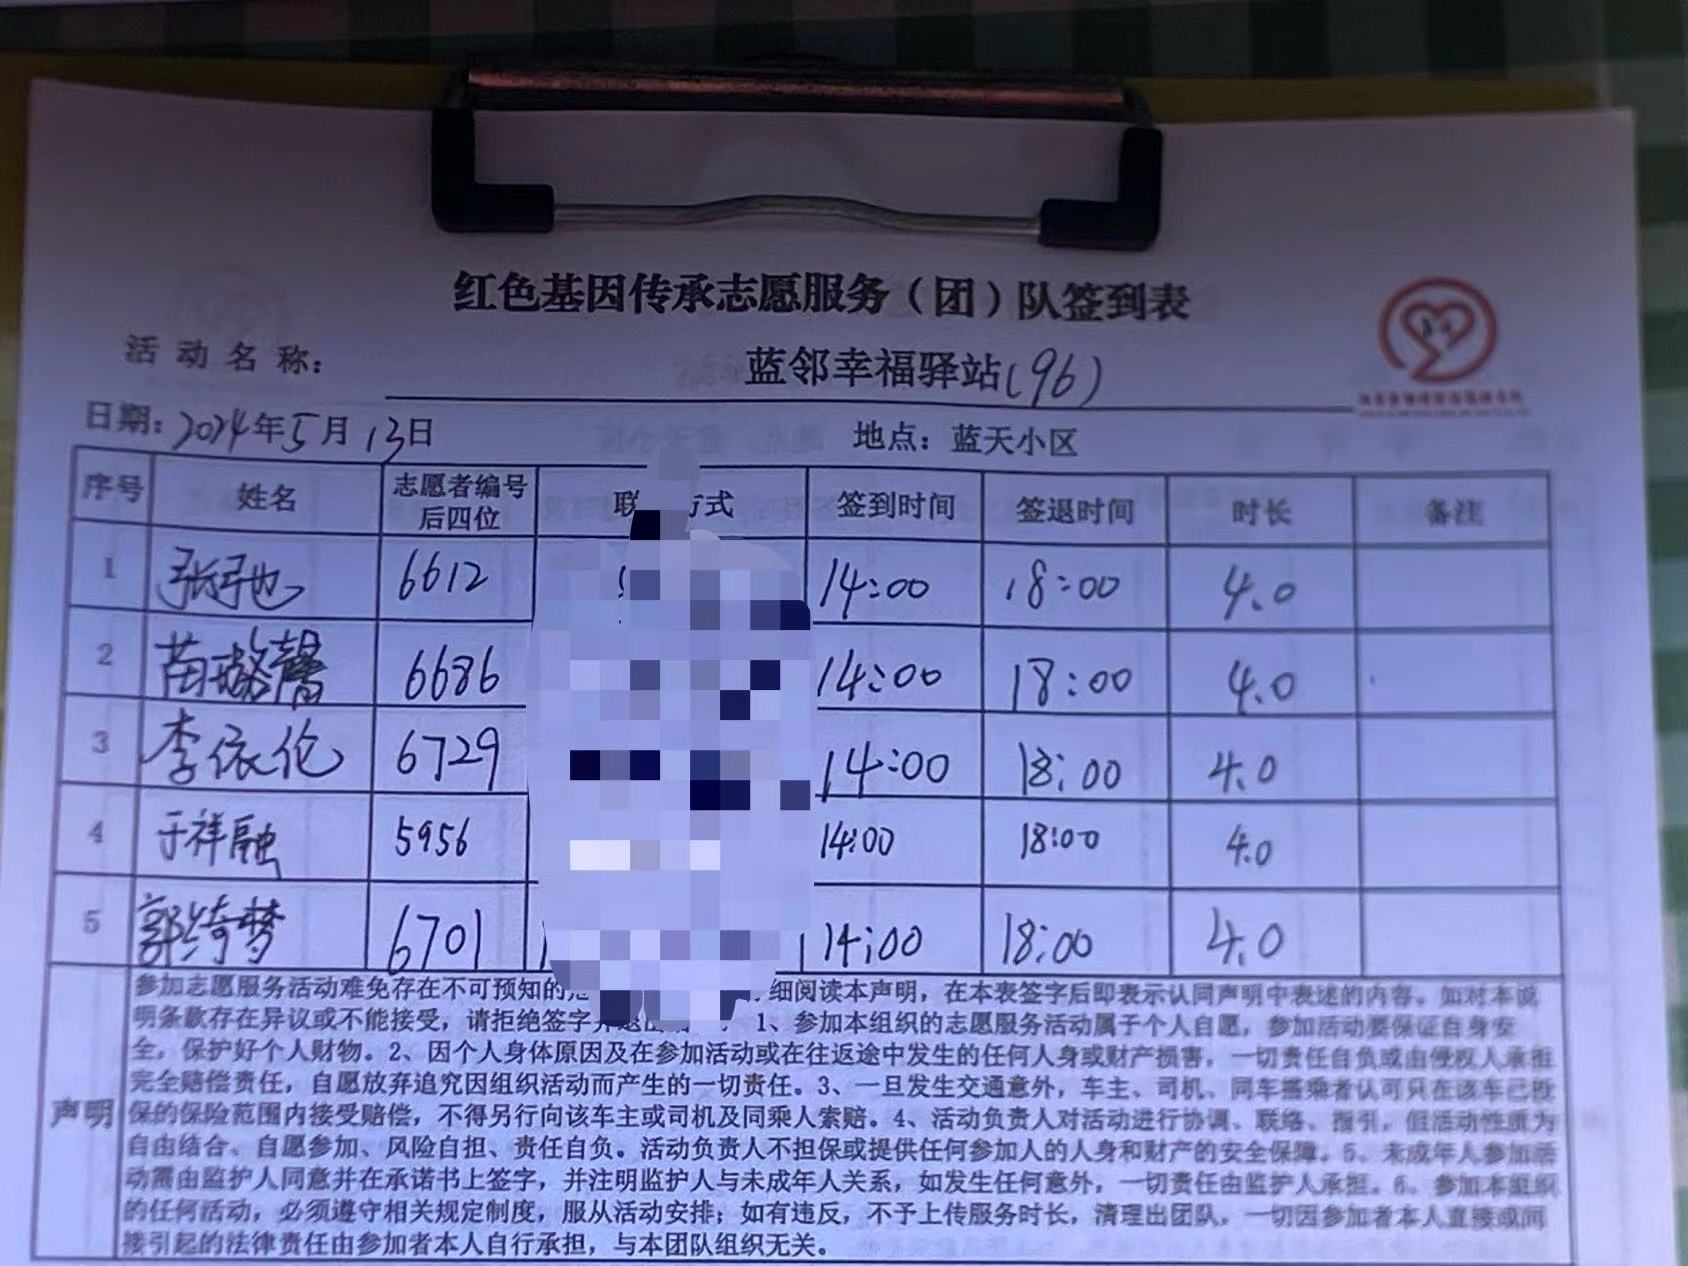 红色基因传承志愿服务（团）队签到表
活动名称： 蓝邻幸福驿站(96)
日期：2024年5月13日 地点：蓝天小区
序号 姓名 志愿者编号后四位 联 方式 签到时间 签退时间 时长 备注
1 张弛 6612 14:00 18:00 4.0
2 苗璐馨 6686 14:00 18:00 4.0
3 李依伦 6729 14:00 18:00 4.0
4 于祥融 5956 14:00 18:00 4.0
5 郭绮梦 6701 14:00 18:00 4.0
声明
参加志愿服务活动难免存在不可预知的 细阅读本声明，在本表签字后即表示认同声明中表述的内容。如对本说
明条款存在异议或不能接受，请拒绝签字并退出 1、参加本组织的志愿服务活动属于个人自愿，参加活动要保证自身安
全，保护好个人财物。2、因个人身体原因及在参加活动或在往返途中发生的任何人身或财产损害，一切责任自负或由侵权人承担
完全赔偿责任，自愿放弃追究因组织活动而产生的一切责任。3、一旦发生交通意外，车主、司机、同车搭乘者认可只在该车已投
保的保险范围内接受赔偿，不得另行向该车主或司机及同乘人索赔。4、活动负责人对活动进行协调、联络、指引，但活动性质为
自由结合、自愿参加、风险自担、责任自负。活动负责人不担保或提供任何参加人的人身和财产的安全保障。5、未成年人参加活
动需由监护人同意并在承诺书上签字，并注明监护人与未成年人关系，如发生任何意外，一切责任由监护人承担。6、参加本组织
的任何活动，必须遵守相关规定制度，服从活动安排；如有违反，不予上传服务时长，清理出团队，一切因参加者本人直接或间
接引起的法律责任由参加者本人自行承担，与本团队组织无关。